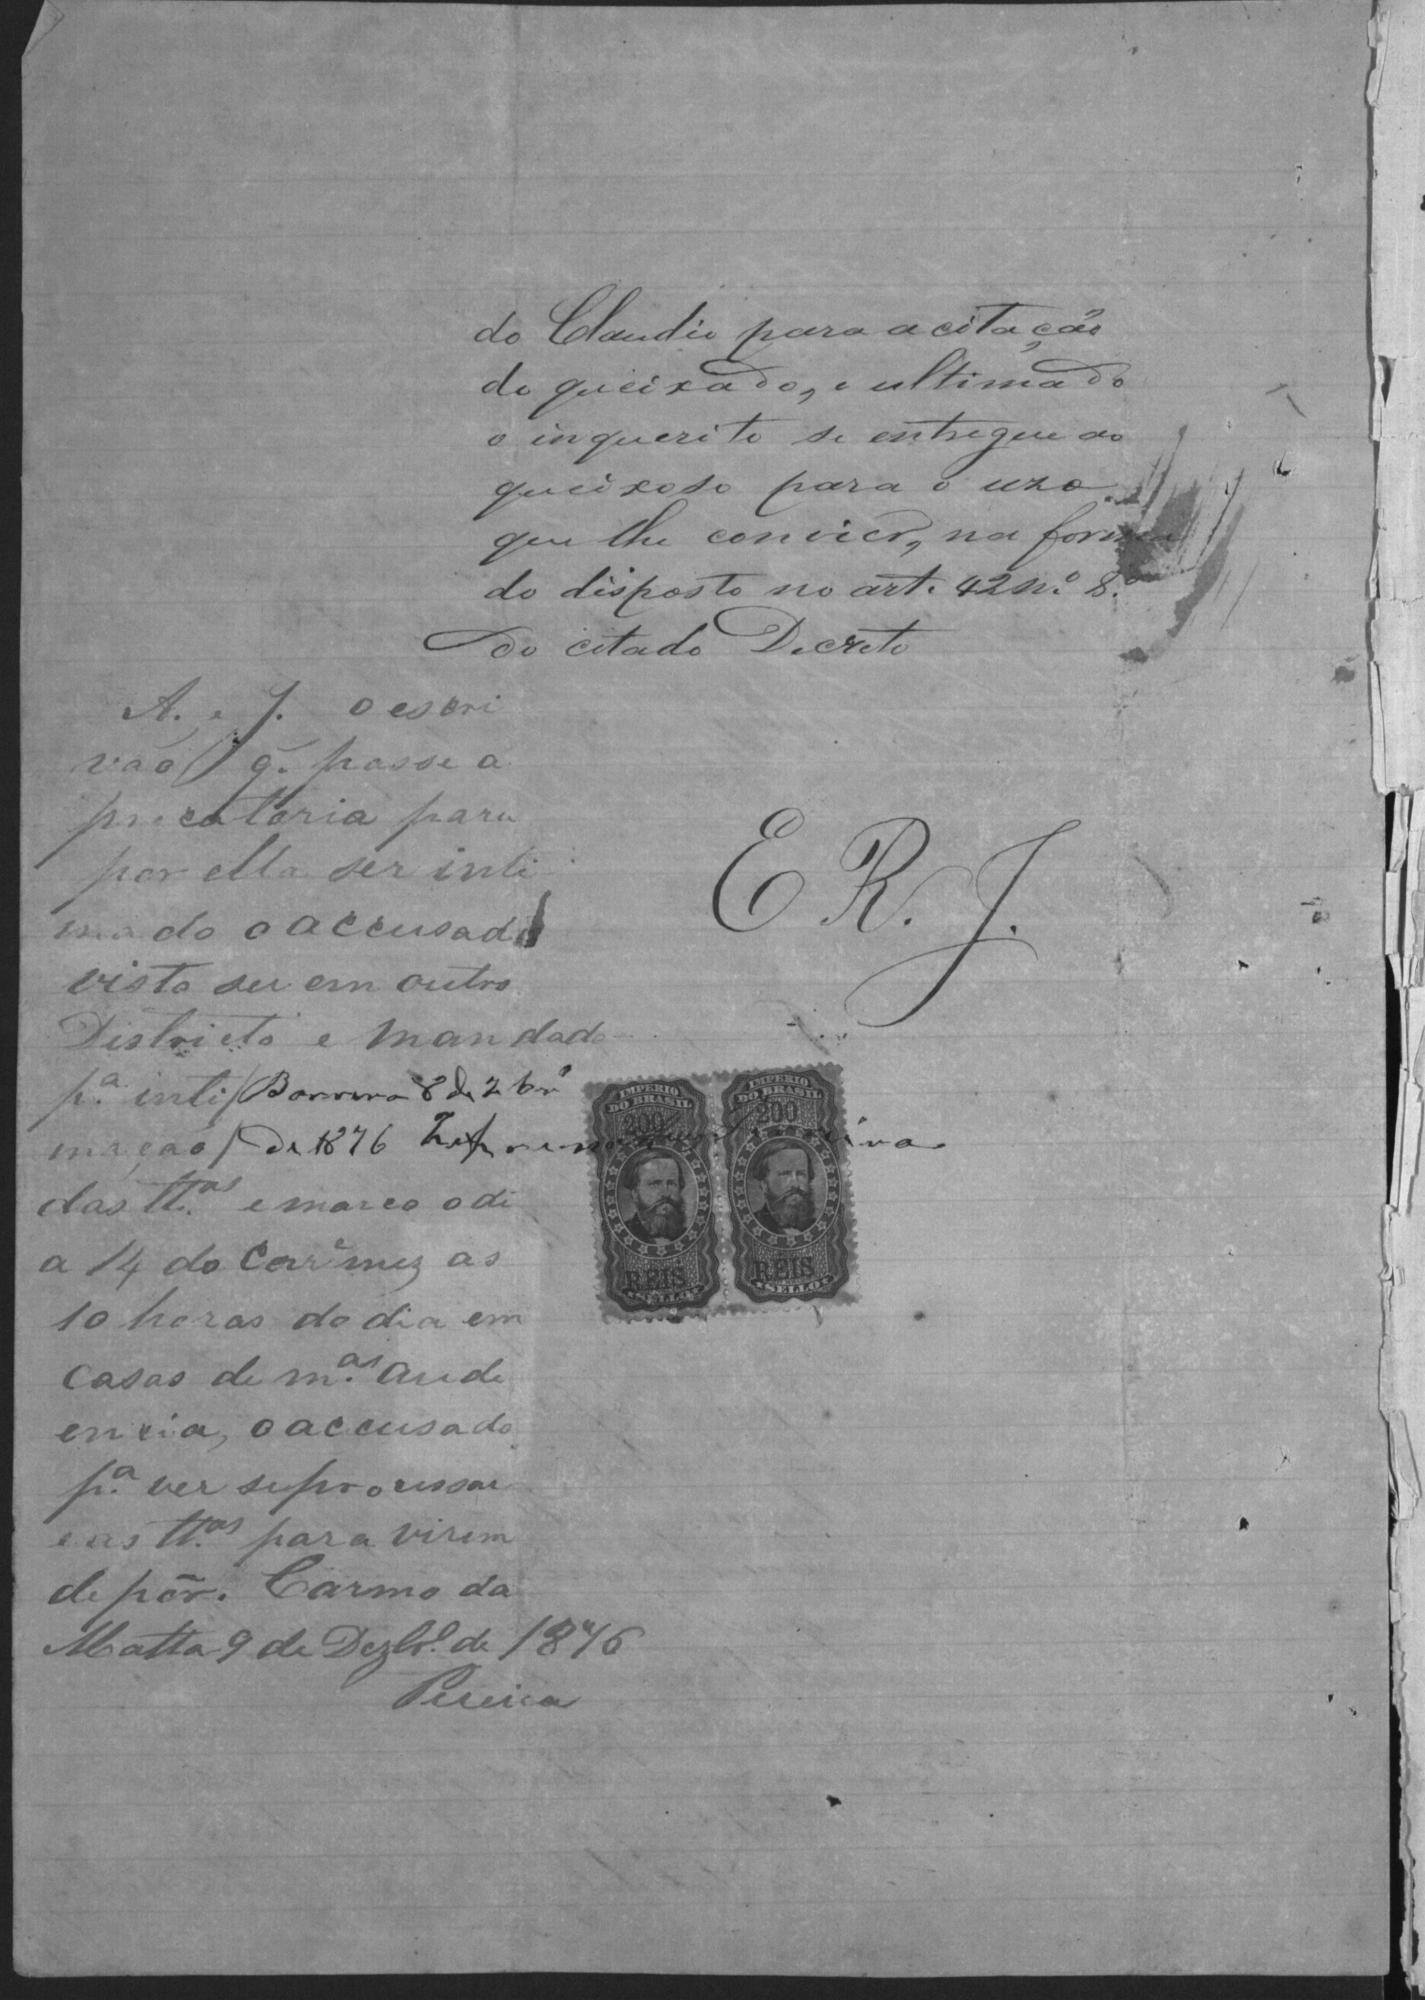 do Claudio para a citação
do queixado, e ultimado
o inquerito se entregue ao
queixoso para o uzo
que lhe convier, na forma
do disposto no art. 42 n.º 8.º
do citado Decreto
A. e J. o escri
vão q. passe a
precatoria para
por ella ser inti
mado o accusado
visto ser em outro
Districto e mandado
p.ª inti
mação
das tt.as e marco o di
a 14 do Corr.e mez as
10 horas do dia em
casas de m.as Aude
encia, o accusado
p.ª ver se processar
e as tt.as para virem
depôr. Carmo da
Matta 9 de Dezbr.º de 1876
Pereira
E R. J.
8 de 
de 1876
IMPERIO
DO BRASIL
200
REIS
SELLO
IMPERIO
DO BRASIL
200
REIS
SELLO